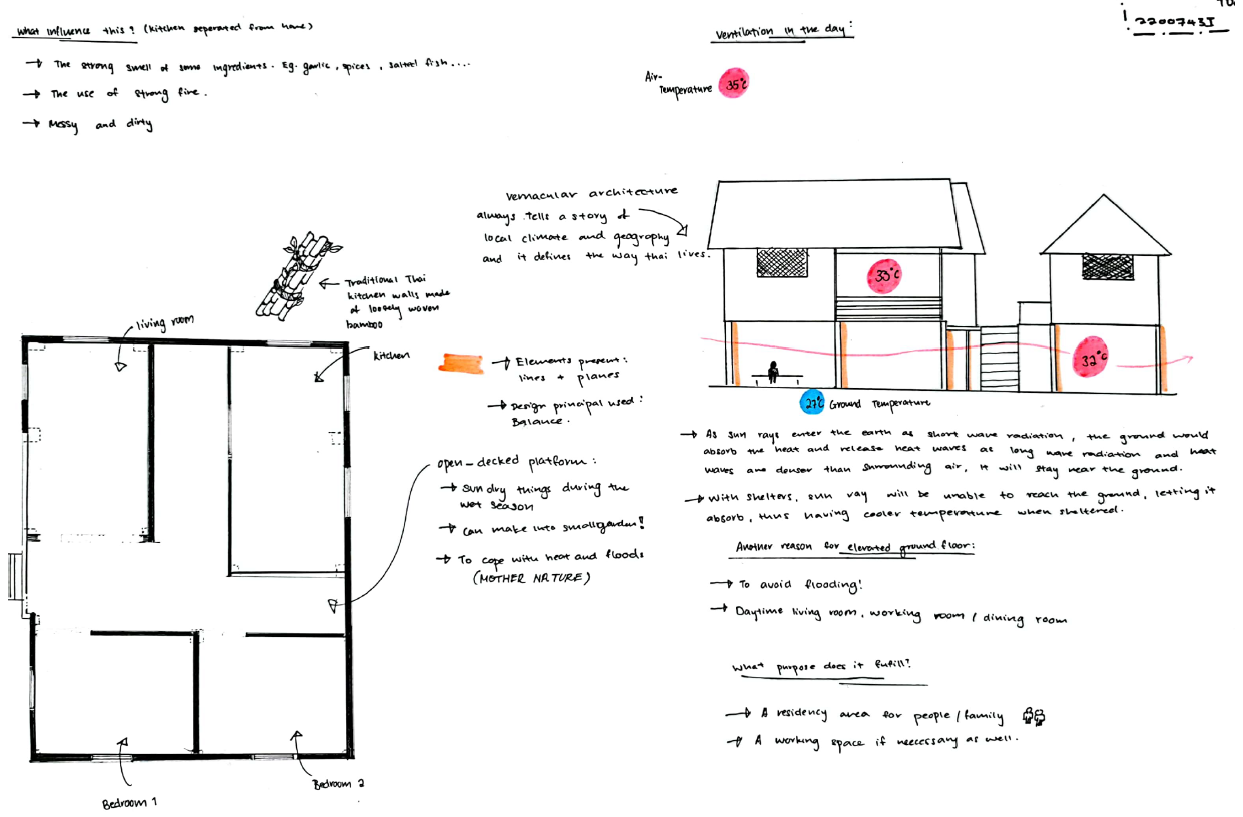 What influence this? (kitchen seperated from home)
→ The strong smell of some ingredients. Eg. garlic, spices, salted fish....
→ The use of strong fire.
→ Messy and dirty
2200743I
Ventilation in the day:
Air-
Temperature 35°c
vernacular architecture
always tells a story of
local climate and geography
and it defines the way thai lives.
33°c
32°c
27°c Ground Temperature
Traditional Thai
kitchen walls made
of loosely woven
bamboo
living room
kitchen
→ Elements present:
lines + planes
→ Design principal used:
Balance.
open-decked platform:
→ sun dry things during the
wet season
→ can make into small garden!
→ To cope with heat and floods
(MOTHER NATURE)
Bedroom 1
Bedroom 2
→ As sun rays enter the earth as short wave radiation, the ground would
absorb the heat and release heat waves as long wave radiation and heat
waves are denser than surrounding air, it will stay near the ground.
→ With shelters, sun ray will be unable to reach the ground, letting it
absorb, thus having cooler temperature when sheltered.
Another reason for elevated ground floor:
→ To avoid flooding!
→ Daytime living room, working room / dining room
What purpose does it fufill?
→ A residency area for people/family
→ A working space if neccessary as well.